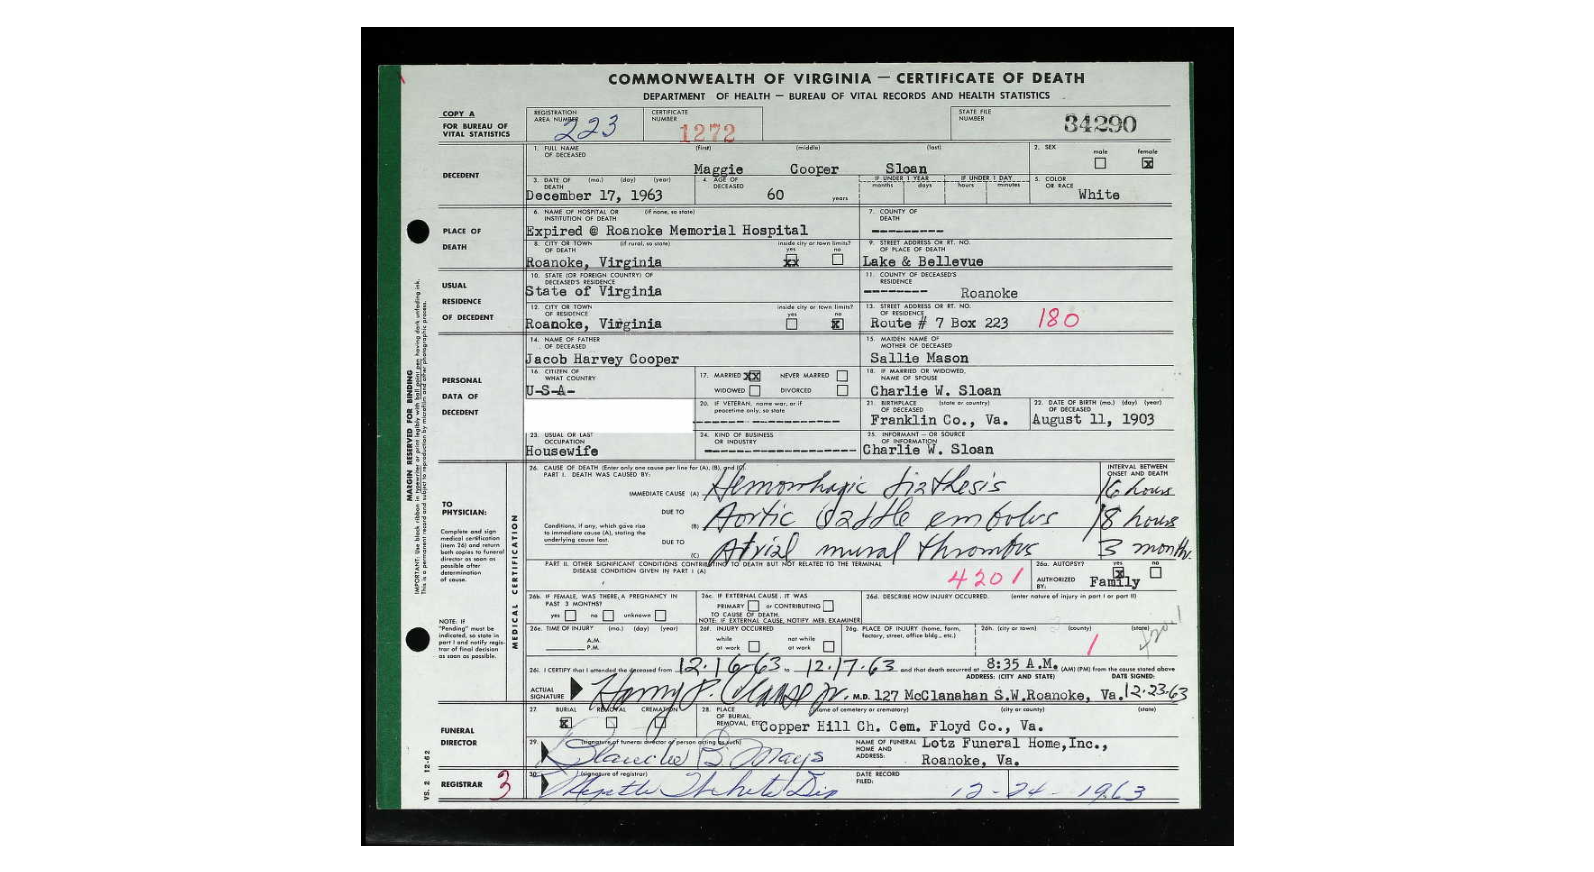 COMMONWEALTH OF VIRGINIA — CERTIFICATE OF DEATH
DEPARTMENT OF HEALTH — BUREAU OF VITAL RECORDS AND HEALTH STATISTICS
COPY A
FOR BUREAU OF
VITAL STATISTICS
REGISTRATION
AREA NUMBER 223
CERTIFICATE
NUMBER 1272
STATE FILE
NUMBER 34290
DECEDENT
1. FULL NAME
OF DECEASED
(first) (middle) (last)
Maggie Cooper Sloan
2. SEX male female X
3. DATE OF DEATH (mo.) (day) (year)
December 17, 1963
4. AGE OF
DECEASED
60 years
IF UNDER 1 YEAR
months days
IF UNDER 1 DAY
hours minutes
5. COLOR
OR RACE
White
PLACE OF
DEATH
6. NAME OF HOSPITAL OR (if none, so state)
INSTITUTION OF DEATH
Expired @ Roanoke Memorial Hospital
7. COUNTY OF
DEATH
---------
8. CITY OR TOWN (if rural, so state)
OF DEATH
Roanoke, Virginia
inside city or town limits?
yes no
xx
9. STREET ADDRESS OR RT. NO.
OF PLACE OF DEATH
Lake & Bellevue
USUAL
RESIDENCE
OF DECEDENT
10. STATE (OR FOREIGN COUNTRY) OF
DECEASED'S RESIDENCE
State of Virginia
11. COUNTY OF DECEASED'S
RESIDENCE
-------- Roanoke
12. CITY OR TOWN
OF RESIDENCE
Roanoke, Virginia
inside city or town limits?
yes no
X
13. STREET ADDRESS OR RT. NO.
OF RESIDENCE
Route # 7 Box 223 180
PERSONAL
DATA OF
DECEDENT
14. NAME OF FATHER
OF DECEASED
Jacob Harvey Cooper
15. MAIDEN NAME OF
MOTHER OF DECEASED
Sallie Mason
16. CITIZEN OF
WHAT COUNTRY
U-S-A-
17. MARRIED XX NEVER MARRIED
WIDOWED DIVORCED
18. IF MARRIED OR WIDOWED,
NAME OF SPOUSE
Charlie W. Sloan
20. IF VETERAN, name war, or if
peacetime only, so state
21. BIRTHPLACE (state or country)
OF DECEASED
Franklin Co., Va.
22. DATE OF BIRTH (mo.) (day) (year)
OF DECEASED
August 11, 1903
23. USUAL OR LAST
OCCUPATION
Housewife
24. KIND OF BUSINESS
OR INDUSTRY
25. INFORMANT — OR SOURCE
OF INFORMATION
Charlie W. Sloan
MARGIN RESERVED FOR BINDING
TO
PHYSICIAN:
Complete and sign
medical certification
(item 26) and return
both copies to funeral
director as soon as
possible after
determination
of cause.
NOTE: IF
"Pending" must be
indicated, so state in
part I and notify regis-
trar of final decision
as soon as possible.
MEDICAL CERTIFICATION
26. CAUSE OF DEATH (Enter only one cause per line for (A), (B), and (C))
PART I. DEATH WAS CAUSED BY:
INTERVAL BETWEEN
ONSET AND DEATH
IMMEDIATE CAUSE (A) Hemorrhagic diathesis 16 hours
DUE TO
(B) Aortic saddle embolus 18 hours
Conditions, if any, which gave rise
to immediate cause (A), stating the
underlying cause last.
DUE TO
(C) Atrial mural thrombus 3 months
PART II. OTHER SIGNIFICANT CONDITIONS CONTRIBUTING TO DEATH BUT NOT RELATED TO THE TERMINAL
DISEASE CONDITION GIVEN IN PART I (A)
4201
26a. AUTOPSY? yes X no
AUTHORIZED
BY: Family
26b. IF FEMALE, WAS THERE A PREGNANCY IN
PAST 3 MONTHS?
yes no unknown
26c. IF EXTERNAL CAUSE, IT WAS
PRIMARY or CONTRIBUTING
TO CAUSE OF DEATH.
NOTE: IF EXTERNAL CAUSE, NOTIFY MED. EXAMINER
26d. DESCRIBE HOW INJURY OCCURRED. (enter nature of injury in part I or part II)
26e. TIME OF INJURY (mo.) (day) (year)
A.M.
P.M.
26f. INJURY OCCURRED
while
at work
not while
at work
26g. PLACE OF INJURY (home, farm,
factory, street, office bldg., etc.)
26h. (city or town) (county) (state)
1
26i. I CERTIFY that I attended the deceased from 12-16-63 to 12-17-63 and that death occurred at 8:35 A.M. (AM) (PM) from the cause stated above
ADDRESS: (CITY AND STATE) DATE SIGNED:
ACTUAL
SIGNATURE Jr. M.D. 127 McClanahan S.W. Roanoke, Va. 12-23-63
FUNERAL
DIRECTOR
27. BURIAL REMOVAL CREMATION
X
28. PLACE
OF BURIAL,
REMOVAL, ETC.
(name of cemetery or crematory) (city or county) (state)
Copper Hill Ch. Cem. Floyd Co., Va.
29. (signature of funeral director or person acting as such)
Blanche B. Mays
NAME OF FUNERAL
HOME AND
ADDRESS:
Lotz Funeral Home, Inc.,
Roanoke, Va.
REGISTRAR 3
30. (signature of registrar)
DATE RECORD
FILED:
12-24-1963
VS. 2 12-62